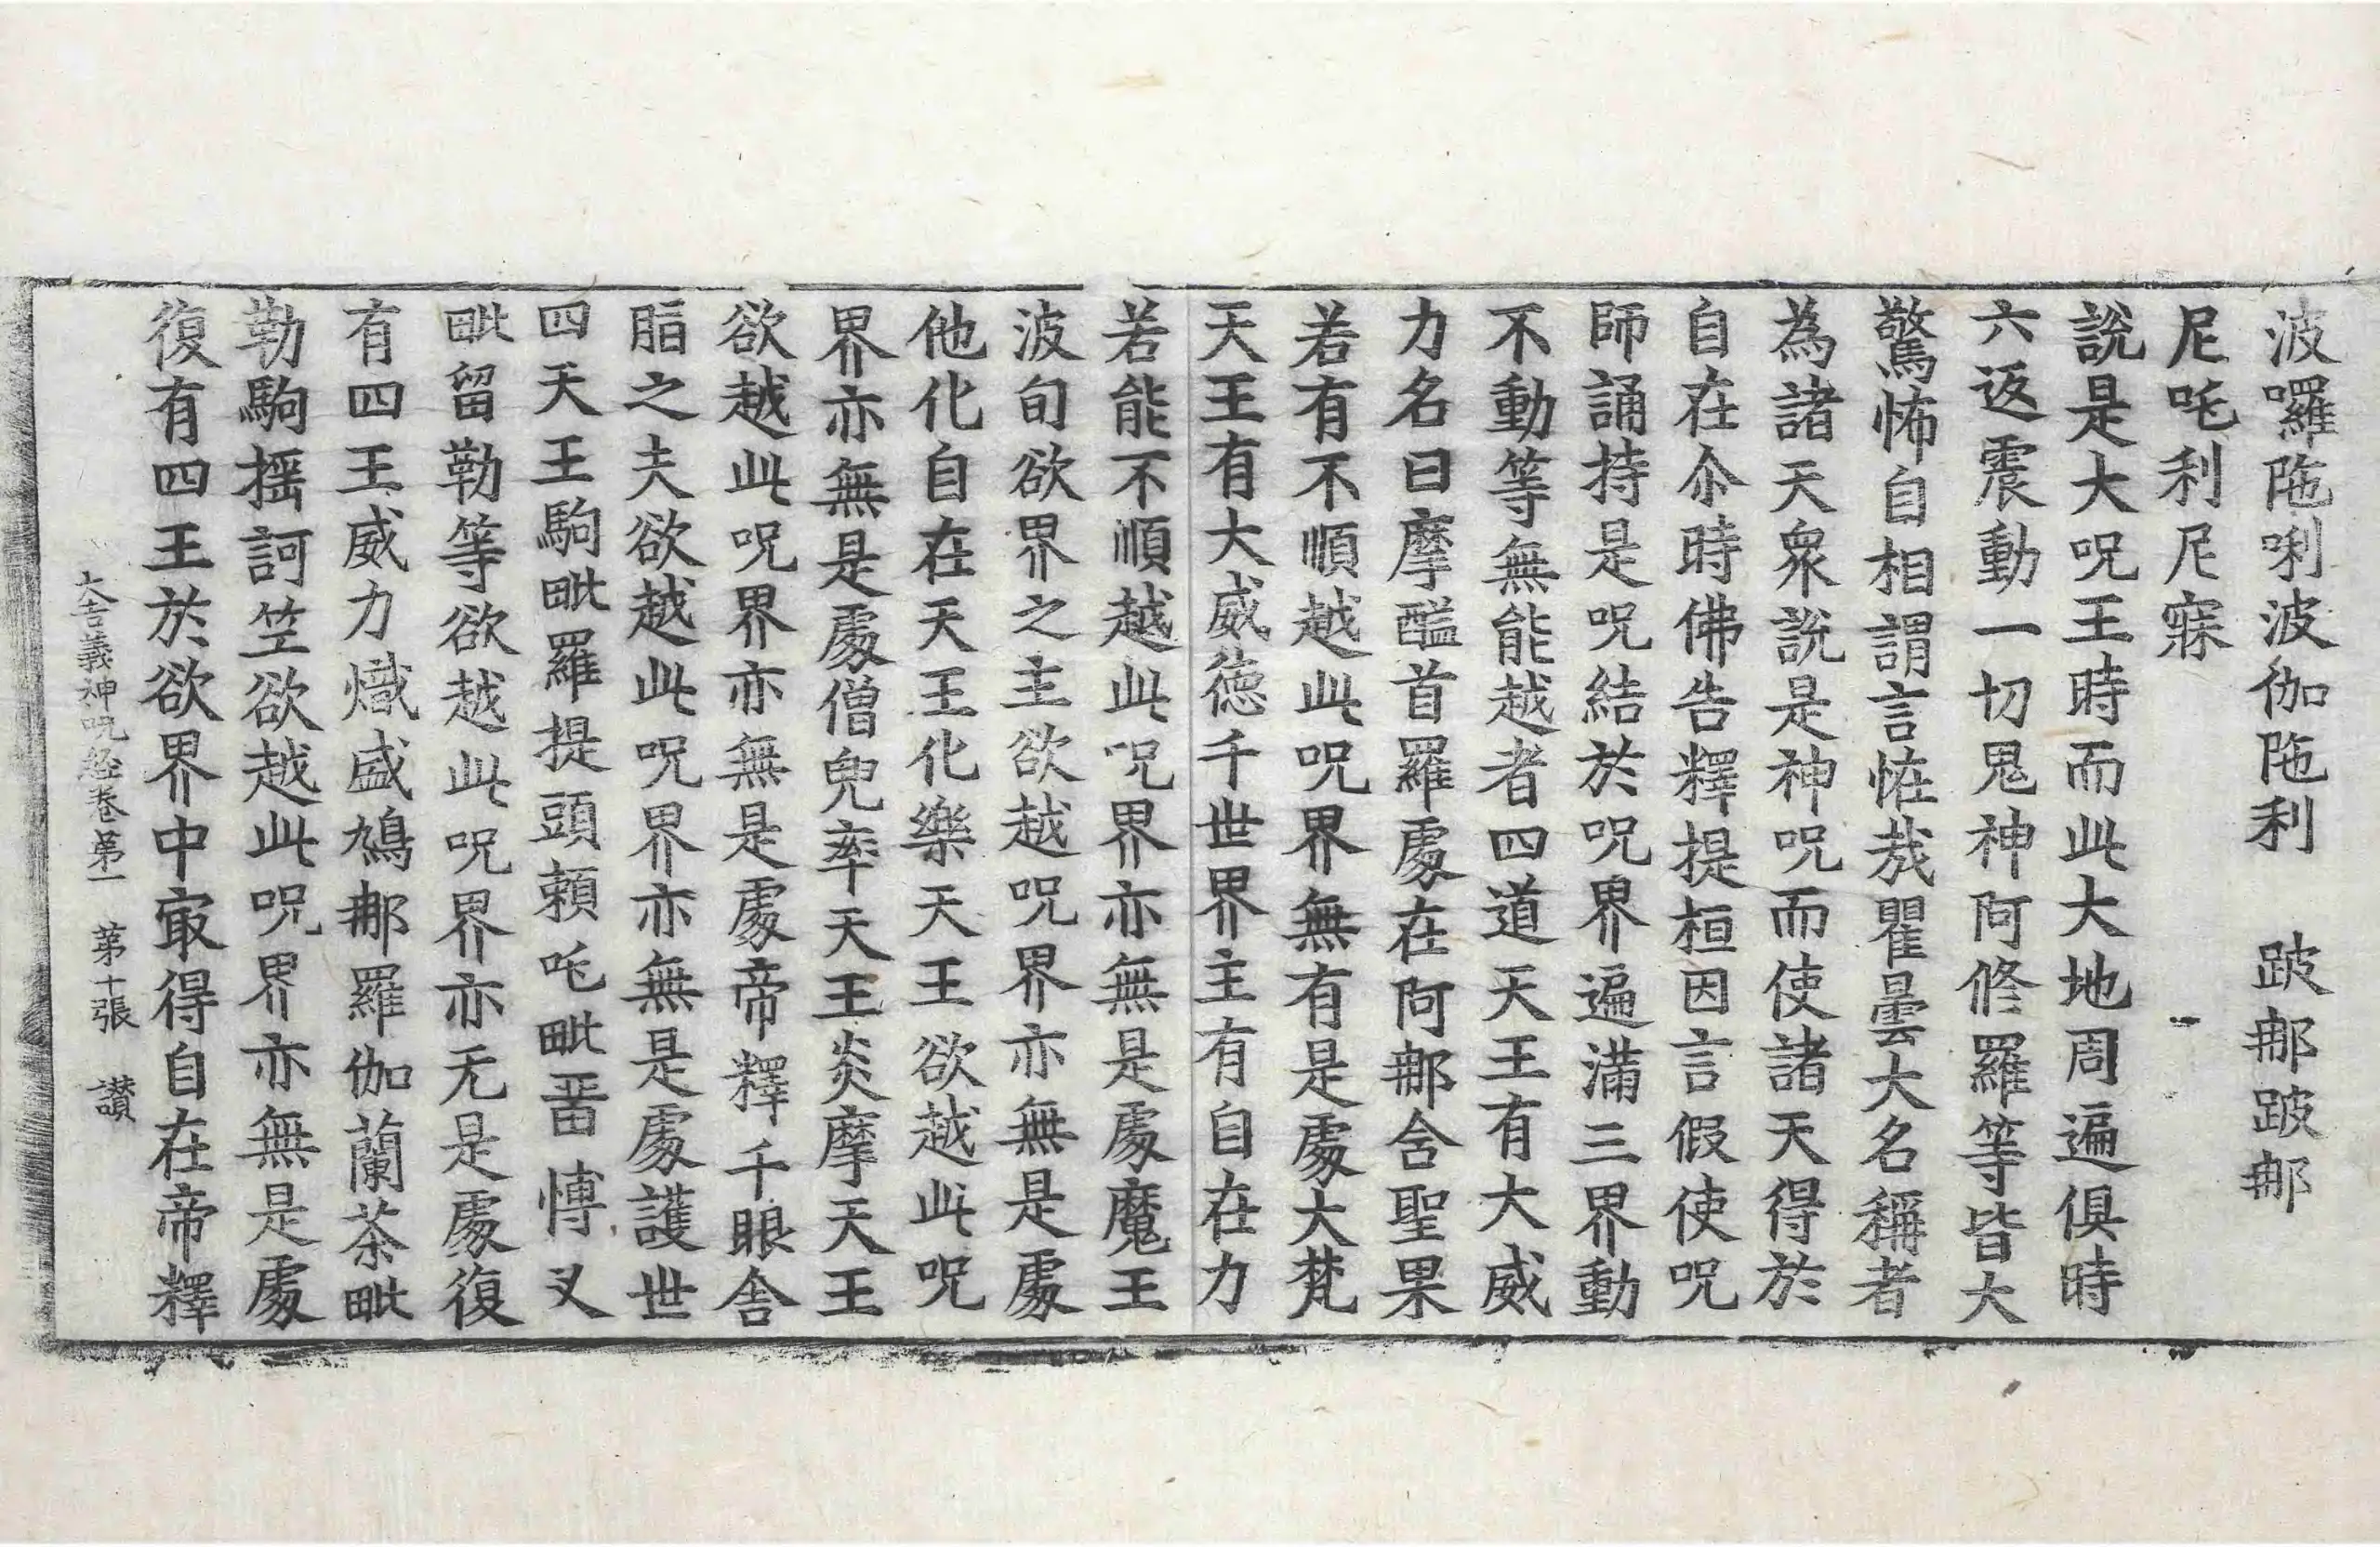 波囉陁唎波伽陁利　跛那跛那
尼吒利尼寐
說是大呪王時而此大地周遍俱時
六返震動一切鬼神阿修羅等皆大
驚怖自相謂言恠㦲瞿曇大名稱者
為諸天衆說是神呪而使諸天得於
自在尒時佛告釋提桓因言假使呪
師誦持是呪結於呪界遍滿三界動
不動等無能越者四道天王有大威
力名曰摩醯首羅處在阿那含聖果
若有不順越此呪界無有是處大梵
天王有大威德千世界主有自在力
若能不順越此呪界亦無是處魔王
波旬欲界之主欲越呪界亦無是處
他化自在天王化樂天王欲越此呪
界亦無是處僧兜率天王炎摩天王
欲越此呪界亦無是處帝釋千眼舍
脂之夫欲越此呪界亦無是處護世
四天王駒毗羅提頭賴吒毗畱慱叉
毗留勒等欲越此呪界亦无是處復
有四王威力熾盛鳩那羅伽蘭茶毗
勒駒揺訶笠欲越此呪界亦無是處
復有四王於欲界中㝡得自在帝釋
大吉義神呪経卷第一　第十張　讃